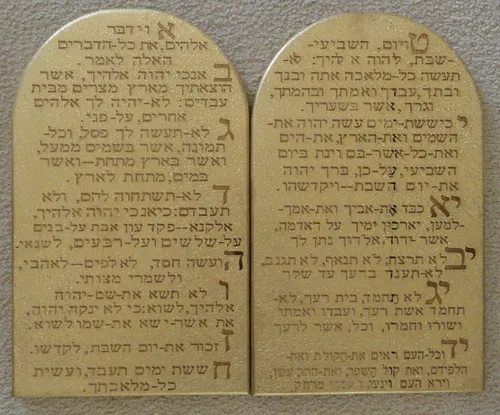 א וידבר
אלהים, את כל-הדברים
האלה לאמר.
ב אנכי יהוה אלהיך, אשר
הוצאתיך מארץ מצרים מבית
עבדים: לא-יהיה לך אלהים
אחרים, על-פני.
ג לא-תעשה לך פסל, וכל-
תמונה, אשר בשמים ממעל,
ואשר בארץ מתחת--ואשר
במים, מתחת לארץ.
ד לא-תשתחוה להם, ולא
תעבדם: כי אנכי יהוה אלהיך,
אל קנא--פקד עון אבת על-בנים
על-שלשים ועל-רבעים, לשנאי.
ה ועשה חסד, לאלפים--לאהבי,
ולשמרי מצותי.
ו לא תשא את-שם-יהוה
אלהיך, לשוא: כי לא ינקה יהוה,
את אשר-ישא את-שמו לשוא.
ז זכור את-יום השבת, לקדשו.
ח ששת ימים תעבד, ועשית
כל-מלאכתך.
ט ויום, השביעי-
-שבת, ליהוה אלהיך: לא-
תעשה כל-מלאכה אתה ובנך
ובתך, עבדך ואמתך ובהמתך,
וגרך, אשר בשעריך.
י כי ששת-ימים עשה יהוה את-
השמים ואת-הארץ, את-הים
ואת-כל-אשר-בם וינח ביום
השביעי, על-כן, ברך יהוה
את-יום השבת--ויקדשהו.
יא כבד את-אביך ואת-אמך-
-למען, יארכון ימיך על האדמה,
אשר-יהוה אלהיך נתן לך
יב לא תרצח, לא תנאף, לא תגנב,
לא-תענה ברעך עד שקר
יג לא תחמד, בית רעך, לא-
תחמד אשת רעך, ועבדו ואמתו
ושורו וחמרו, וכל, אשר לרעך
יד וכל-העם ראים את-הקולת ואת-
הלפידם, ואת קול השפר, ואת-ההר, עשן,
וירא העם וינעו, ויעמדו מרחק.